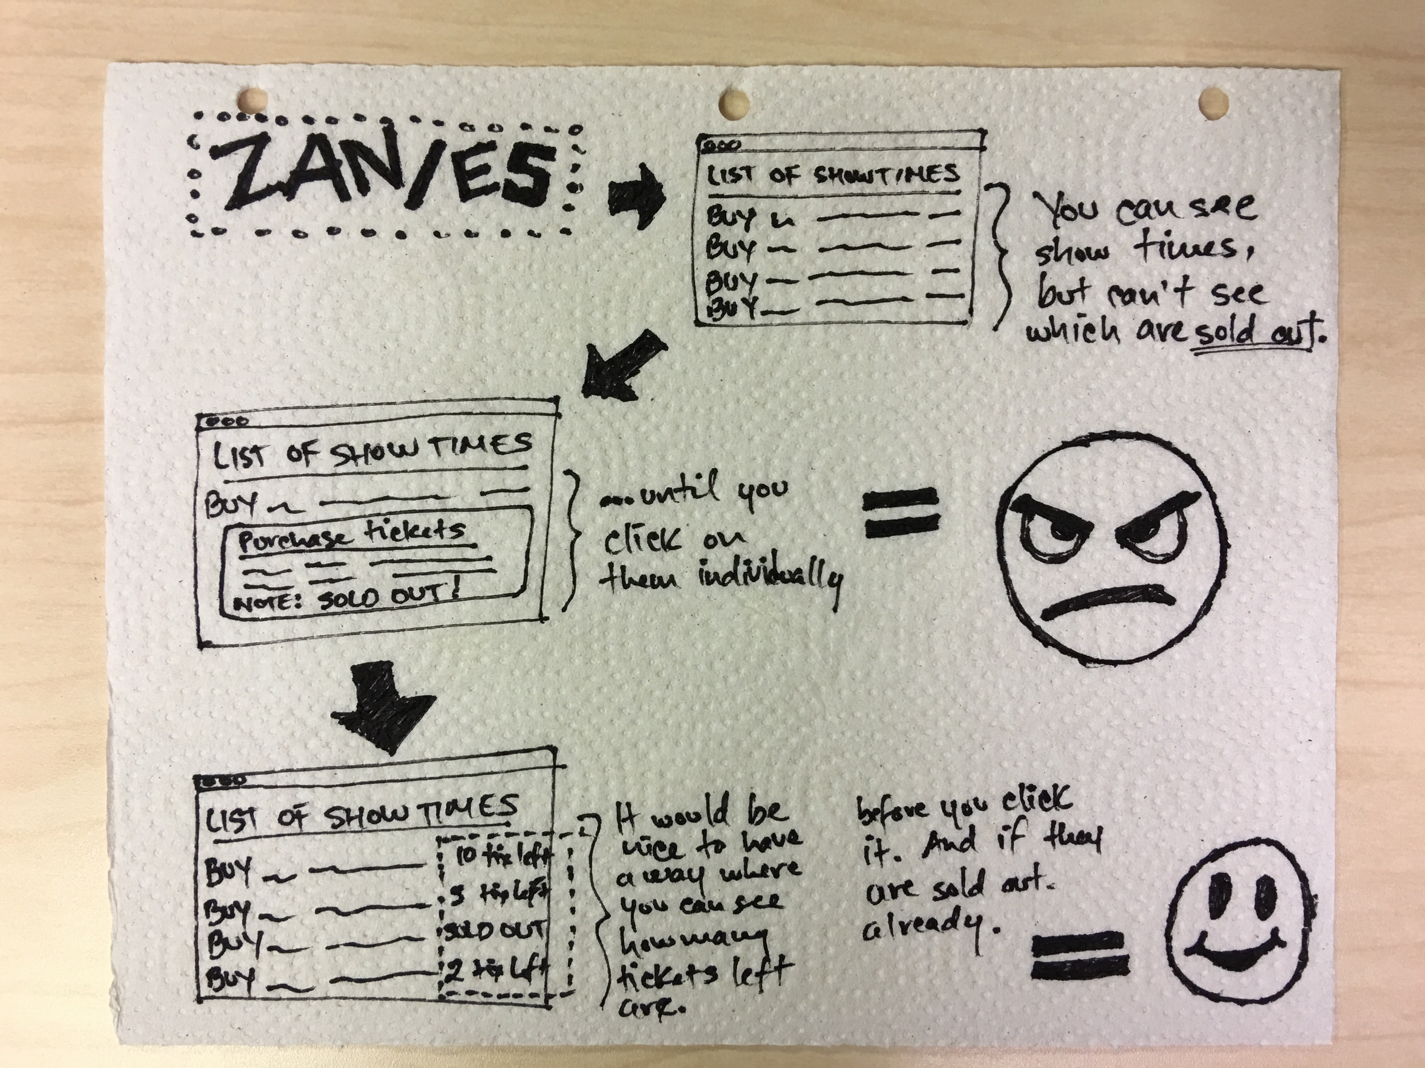 ZANIES
LIST OF SHOWTIMES
BUY
BUY
BUY
BUY
You can see
show times,
but can't see
which are sold out.
LIST OF SHOW TIMES
BUY
Purchase tickets
NOTE: SOLD OUT!
...until you
click on
them individually
=
LIST OF SHOW TIMES
BUY 10 tix left
BUY 3 tix left
BUY SOLD OUT
BUY 2 tix left
It would be
nice to have
a way where
you can see
how many
tickets left
are.
before you click
it. And if they
are sold out.
already.
=